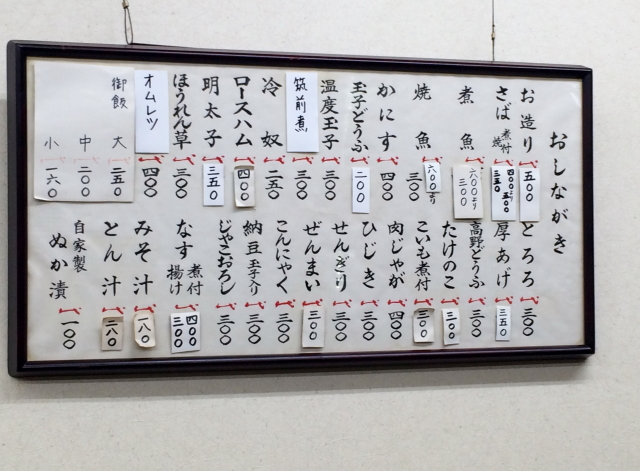 おしながき
お造り 五〇〇
さば 煮付 焼
煮魚 六〇〇より 三〇〇
焼魚 六〇〇より 三〇〇
かにす 四〇〇
玉子どうふ 二〇〇
温度玉子 三〇〇
筑前煮 三〇〇
冷奴 二五〇
ロースハム 四〇〇
明太子 三五〇
ほうれん草 三〇〇
オムレツ 四〇〇
御飯 大 二五〇
中 二〇〇
小 一六〇
とろろ 三〇〇
厚あげ 三五〇
高野どうふ 三〇〇
たけのこ 三〇〇
こいも煮付 三〇〇
肉じゃが 四〇〇
ひじき 三〇〇
せんぎり 三〇〇
ぜんまい 三〇〇
こんにゃく 三〇〇
納豆玉子入り 三〇〇
じゃこおろし 三〇〇
なす 煮付 四〇〇 揚げ 三〇〇
みそ汁 一八〇
とん汁 二八〇
自家製
ぬか漬 一〇〇